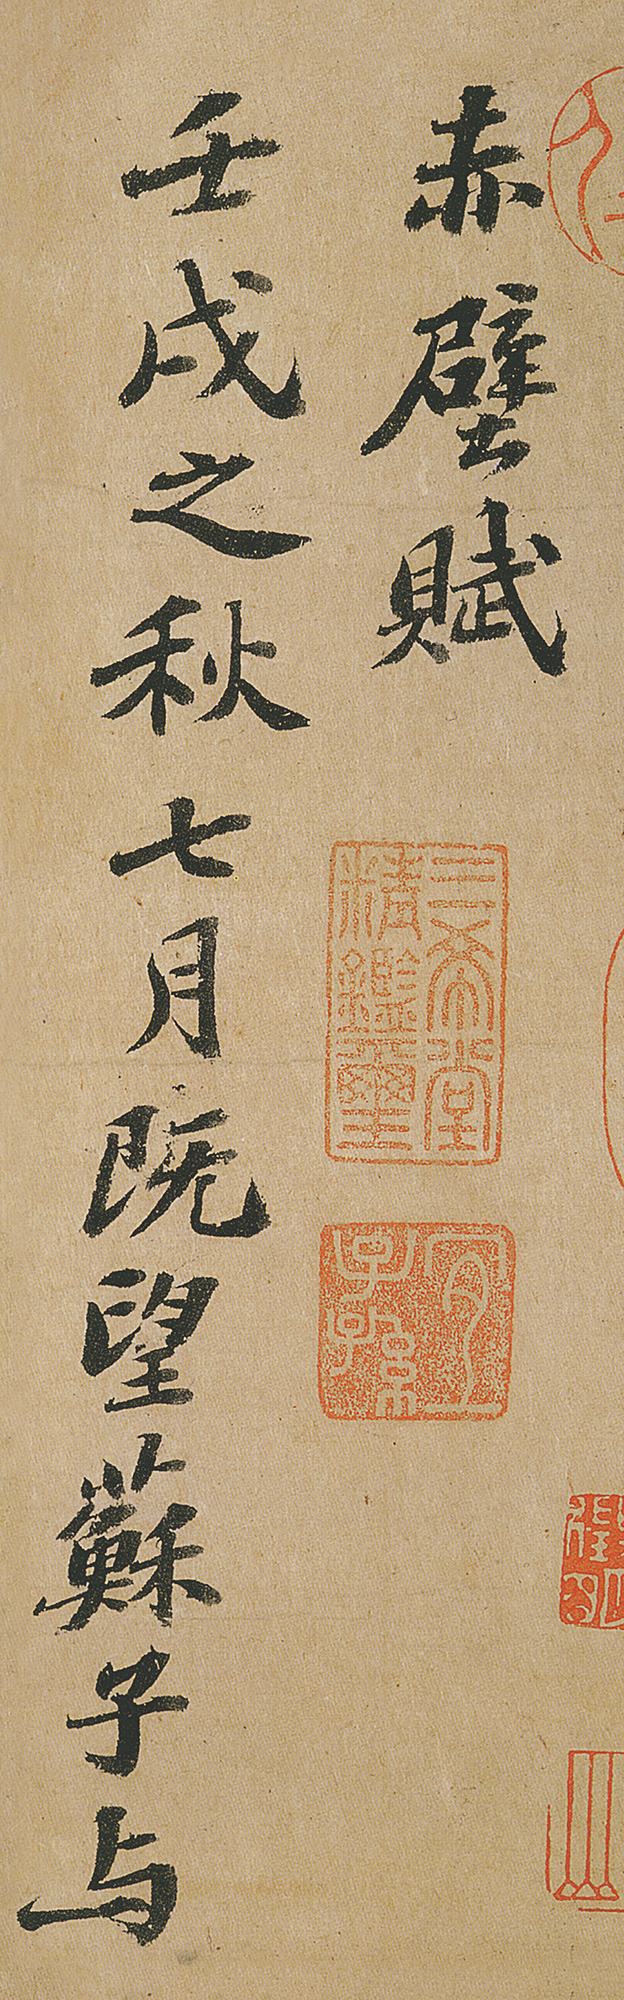 赤壁賦
壬戌之秋七月既望蘇子与
三希堂
精鑑璽
宜
子孫